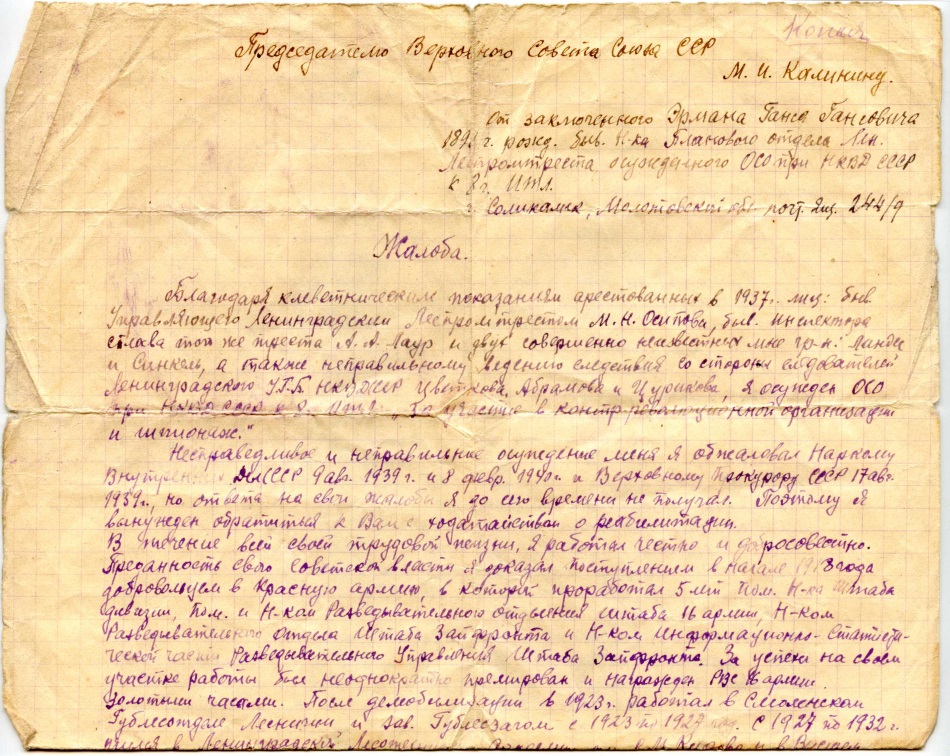 Копия
Председателю Верховного Совета Союза ССР
М. И. Калинину.
от заключенного Эрмана Ганса Гансовича
рожд. быв. Н-ка Планового отдела Лен.
Леспромтреста осужденного ОСО при НКВД СССР
к 8 г. ИТЛ.
г. Соликамск, Молотовской обл. почт. ящ. 244/9
Жалоба.
Благодаря клеветническим показаниям арестованных в 1937г. лиц: быв.
Управляющего Ленинградским Леспромтрестом М. Н. Осипова, быв. инспектора
сплава того же треста А. А. Лаур и двух совершенно неизвестных мне гр-н:
и Синкель, а также неправильному ведению следствия со стороны следователей
Ленинградского УГБ НКВД СССР Цветкова, Абрамова и Цурикова, я осужден ОСО
при НКВД СССР к 8 г. ИТЛ. „За участие в контрреволюционной организации
и шпионаж."
Несправедливое и неправильное осуждение меня я обжаловал Наркому
Внутренних Дел СССР 9 авг. 1939 г. и 8 февр. 1940 г. и Верховному Прокурору СССР 17 авг.
1939г., но ответа на свои жалобы я до сего времени не получал. Поэтому я
вынужден обратиться к Вам с ходатайством о реабилитации.
В течение всей своей трудовой жизни, я работал честно и добросовестно.
Преданность свою Советской власти я доказал поступлением в начале 1918 года
добровольцем в Красную армию, в которой проработал 5 лет Пом. Н-ка Штаба
дивизии, Пом. и Н-ком Разведывательного отделения штаба 16 армии, Н-ком
Разведывательного отдела Штаба Запфронта и Н-ком Информационно-Статисти-
ческой части Разведывательного Управления Штаба Запфронта. За успехи на своем
участке работы был неоднократно премирован и награжден РВС армии
золотыми часами. После демобилизации в 1923 г. работал в Смоленском
Гублесотделе Лесничим и зав. Гублесзагом с 1923 по 1927 год. С 1927 по 1932 г.
в Ленинградской